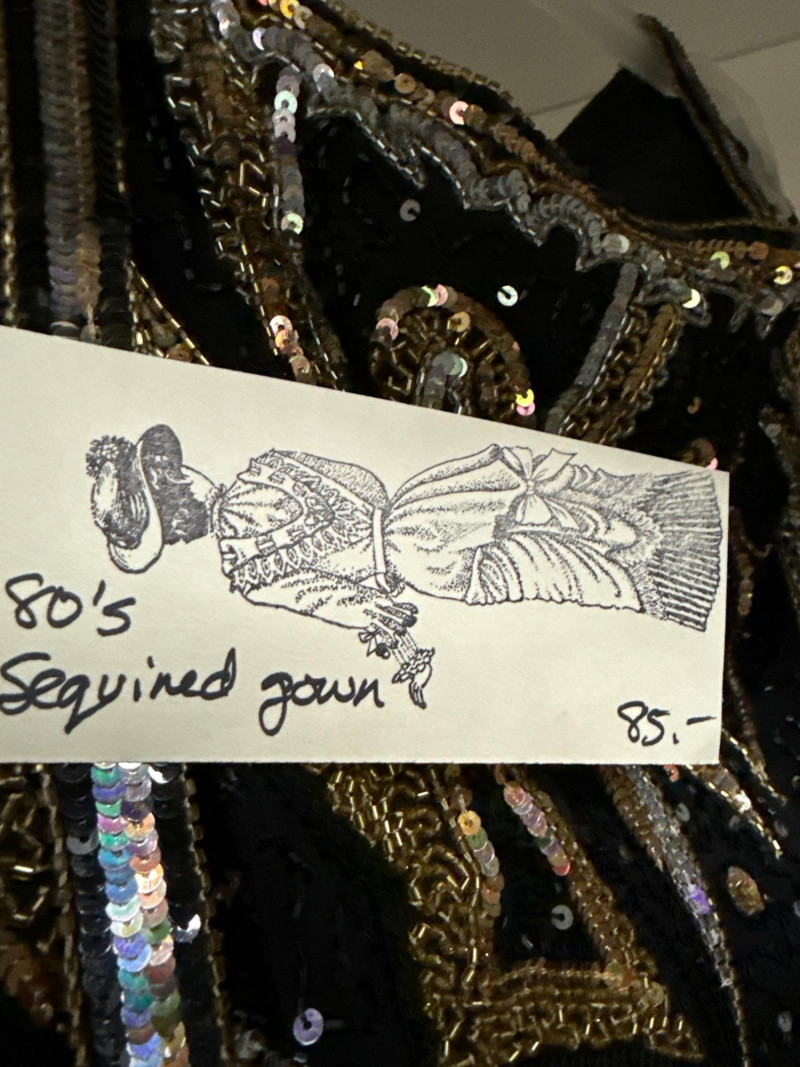 80's
Sequined gown
85.-